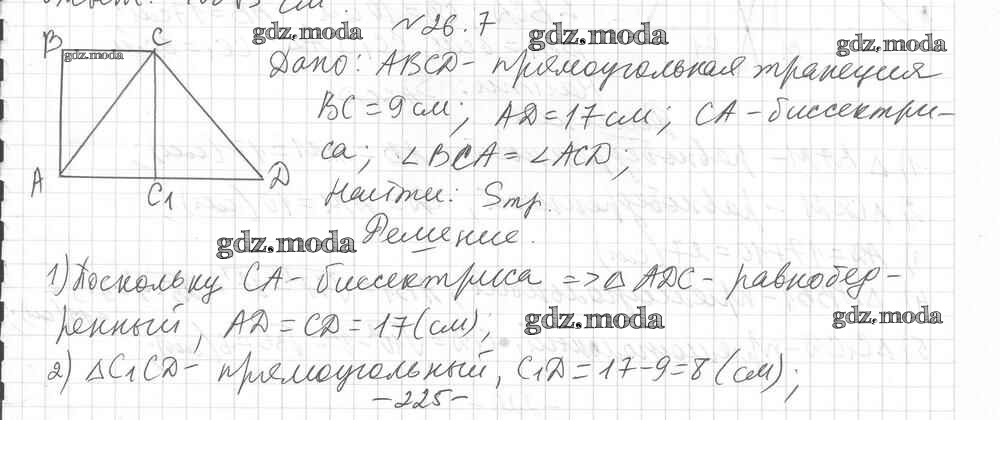 № 26.7
B C
Дано: ABCD - прямоугольная трапеция
BC = 9 см; AD = 17 см; CA - биссектри-
са; ∠BCA = ∠ACD;
A C₁ D
Найти: Sтр.
Решение.
1) Поскольку CA - биссектриса => △ ADC - равнобед-
ренный, AD = CD = 17 (см),
2) △C₁CD - прямоугольный, C₁D = 17 - 9 = 8 (см);
- 225 -
gdz.moda
gdz.moda
gdz.moda
gdz.moda
gdz.moda
gdz.moda
gdz.moda